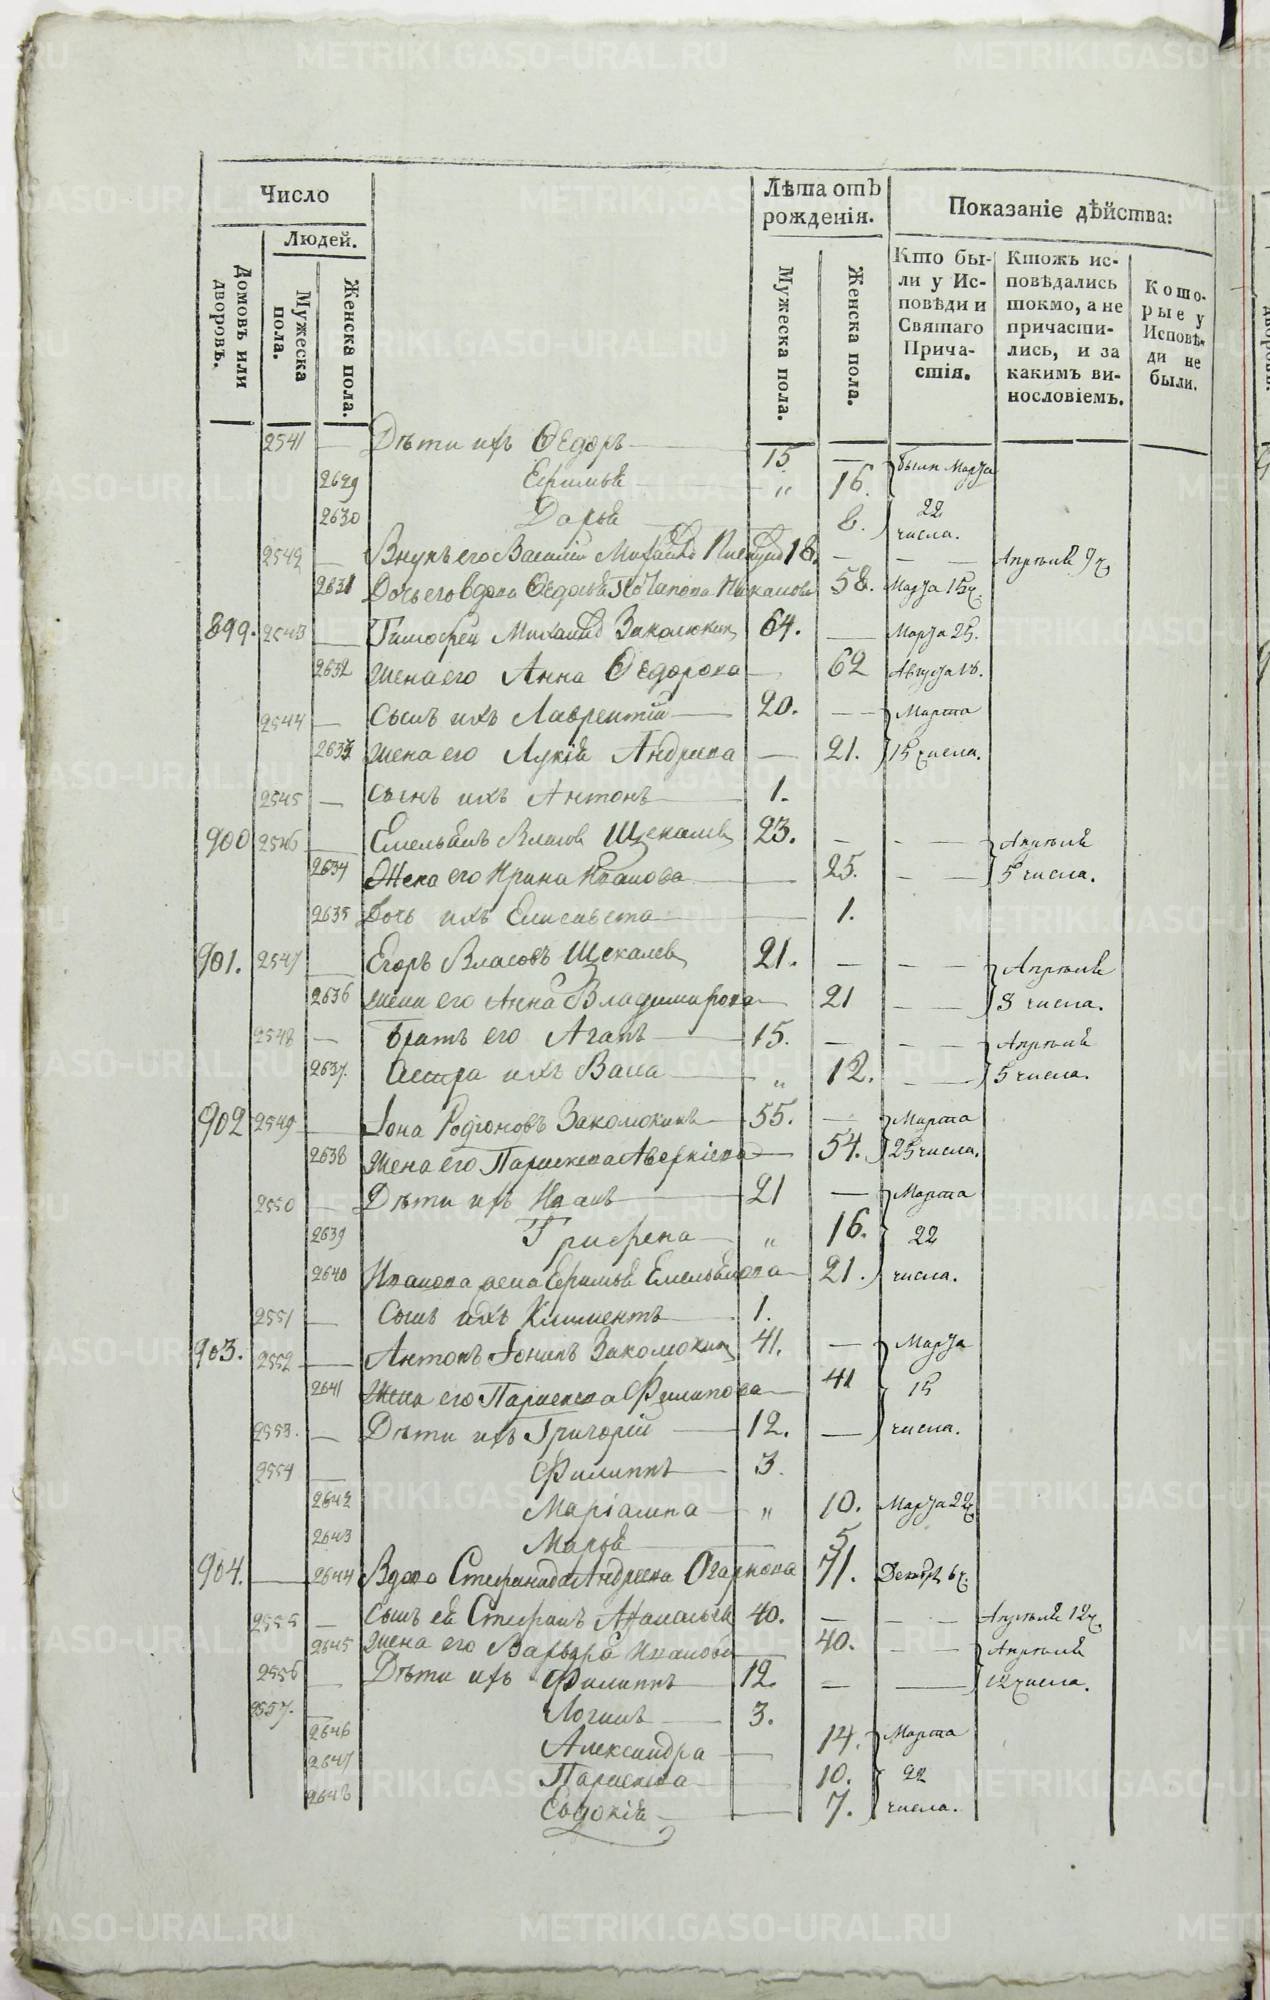 Число
Людей.
Домовъ или дворовъ.
Мужеска пола.
Женска пола.
Лѣта отъ рожденія.
Мужеска пола.
Женска пола.
Показаніе дѣйства:
Кто бы-
ли у Ис-
повѣди и
Святаго
Прича-
стія.
Ктожъ ис-
повѣдались
токмо, а не
причасти-
лись, и за
какимъ ви-
нословіемъ.
Кото-
рые у
Исповѣ-
ди не
были.
2541 — Дѣти ихъ Ѳедоръ — 15 — были Марта
2629 Ефимья — „ 16.
2630 Дарья — 8. 22 числа.
2542 — Внукъ его Василій 18. — — — Апрѣля 9 ч.
2631 Дочь его вдова Ѳедосья 58. Марта 15 ч.
899. 2543 — Тимоѳей Михаиловъ Заколюкин 64. — Марта 25.
2632 Жена его Анна Ѳедорова — 62 Августа
2544 — Сынъ ихъ Лаврентій — 20. — — Марта
2633 Жена его Лукія Андреева — 21. 15 числа.
2545 — Сынъ ихъ Антонъ — 1.
900 2546 — Емельянъ Власов Щекалев 23. — — — Апрѣля
2634 Жена его Ирина Иванова — 25. — — 5 числа.
2635 Дочь ихъ Елисавета — 1.
901. 2547 — Егоръ Власовъ Щекалев 21. — — — Апрѣля
2636 Жена его Анна Владимирова — 21 — — 8 числа.
2548 — Братъ его Агапъ — 15. — — — Апрѣля
2637. Сестра ихъ Васса — „ 12. — — 5 числа.
902 2549 — Іона Родіоновъ Заколюкинъ — 55. — Марта
2638 Жена его Параскева Аверкіева — 54. 25 числа.
2550 — Дѣти ихъ Иванъ — 21 — Марта
2639 Трифена — „ 16. 22
2640 Иванова жена Ефимья Емельянова — 21. числа.
2551 — Сынъ ихъ Климентъ — 1.
903. 2552 — Антонъ Іонинъ Заколюкин 41. — Марта
2641 Жена его Параскева Филипова — 41 15
2553. — Дѣти ихъ Григорій — 12. — числа.
2554 — Филиппъ — 3.
2642 Маріамна — „ 10. Марта 22 ч.
2643 Марья — 5
904. — 2644 Вдова Стефанида Андреева Огаркова 71. Декабр. 6 ч.
2555 — Сынъ ея Стефанъ 40. — — — Апрѣля 12 ч.
2645 Жена его Варвара Иванова — 40. — — Апрѣля
2556 — Дѣти ихъ Филиппъ — 12. — — 12 числа.
2557. — Логинъ — 3.
2646 Александра — 14. Марта
2647 Параскева — 10. 22
2648 Евдокія — 7. числа.
METRIKI.GASO-URAL.RU